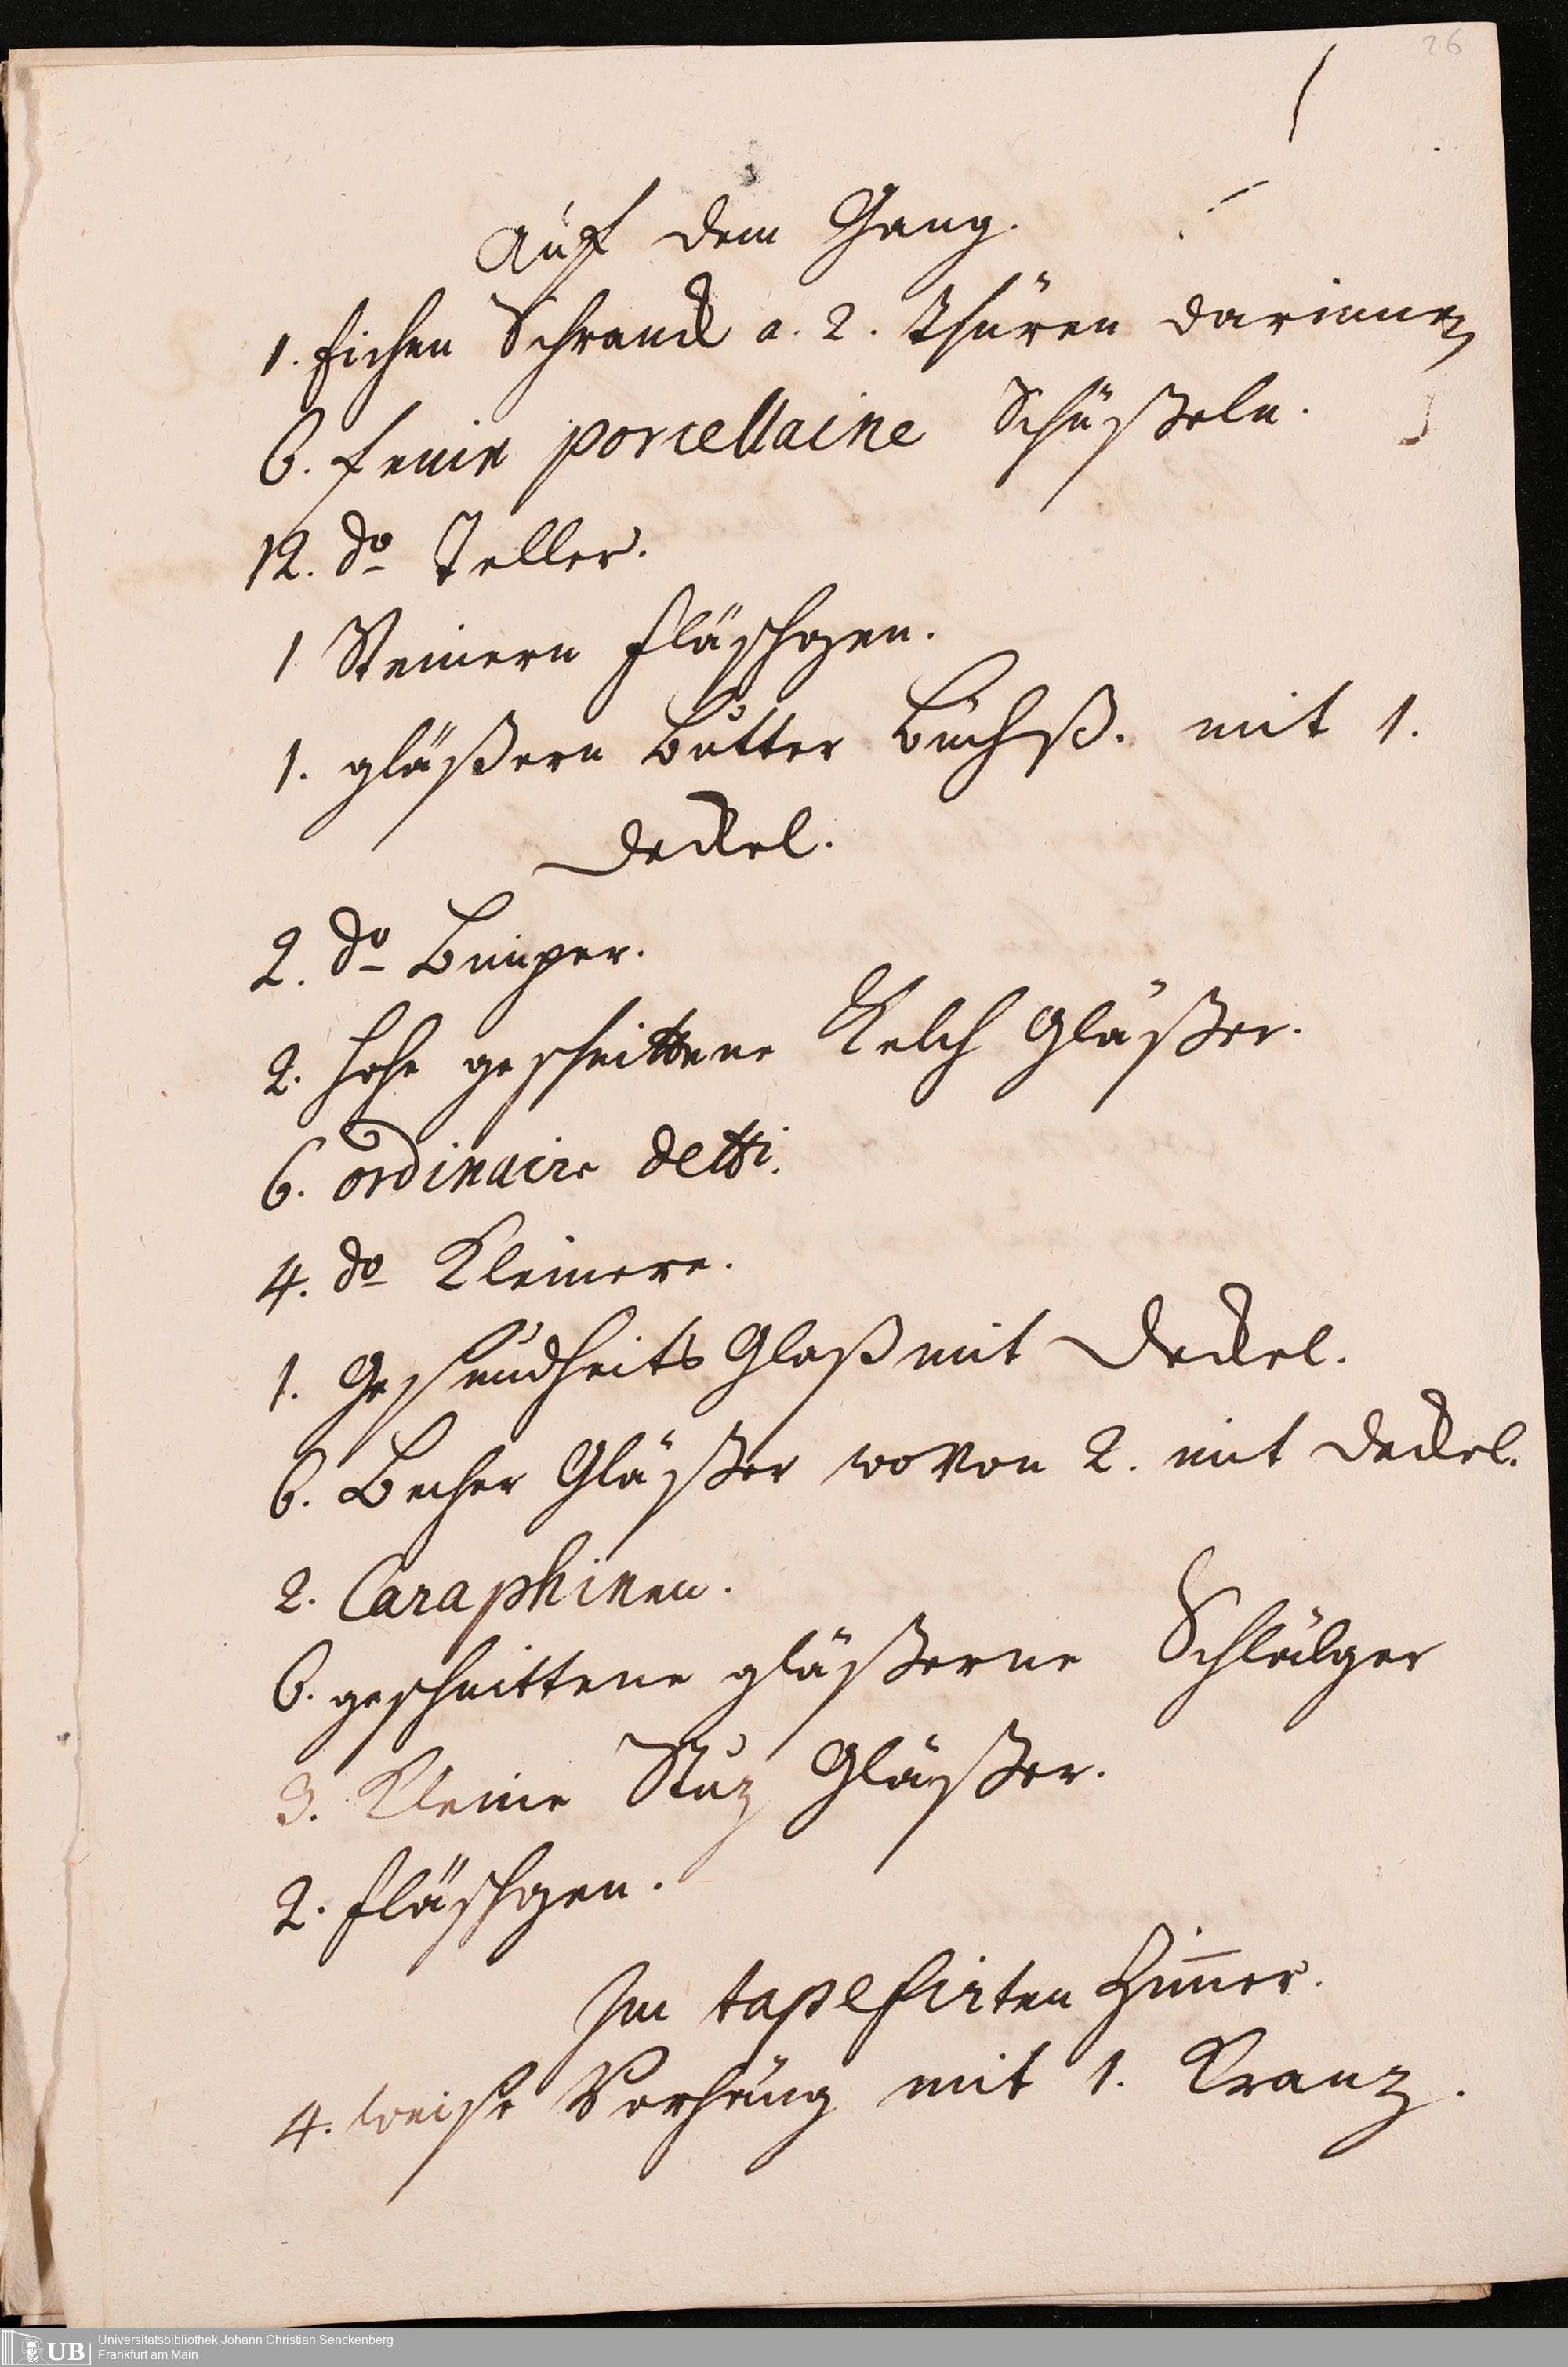 26
Auf dem Gang.
1. Eichen Schranck a. 2. Thüren darinnen
6. feine porcellaine Schüßeln.
12. do Teller.
1 Steinern Fläschgen.
1. gläßern Butter Büchß. mit 1.
Deckel.
2. do
2. hohe geschnittene Kelch Gläßer.
6. ordinaire detti.
4. do Kleinere.
1. Gesundheits Glaß mit Deckel.
6. Becher Gläßer wovon 2. mit Deckel.
2. Caraphinen.
6. geschnittene gläßerne
3. Kleine Stuz Gläßer.
2. Fläschgen.
Im Zimer.
4. weise Vorhäng mit 1. Kranz.
UB
Universitätsbibliothek Johann Christian Senckenberg
Frankfurt am Main